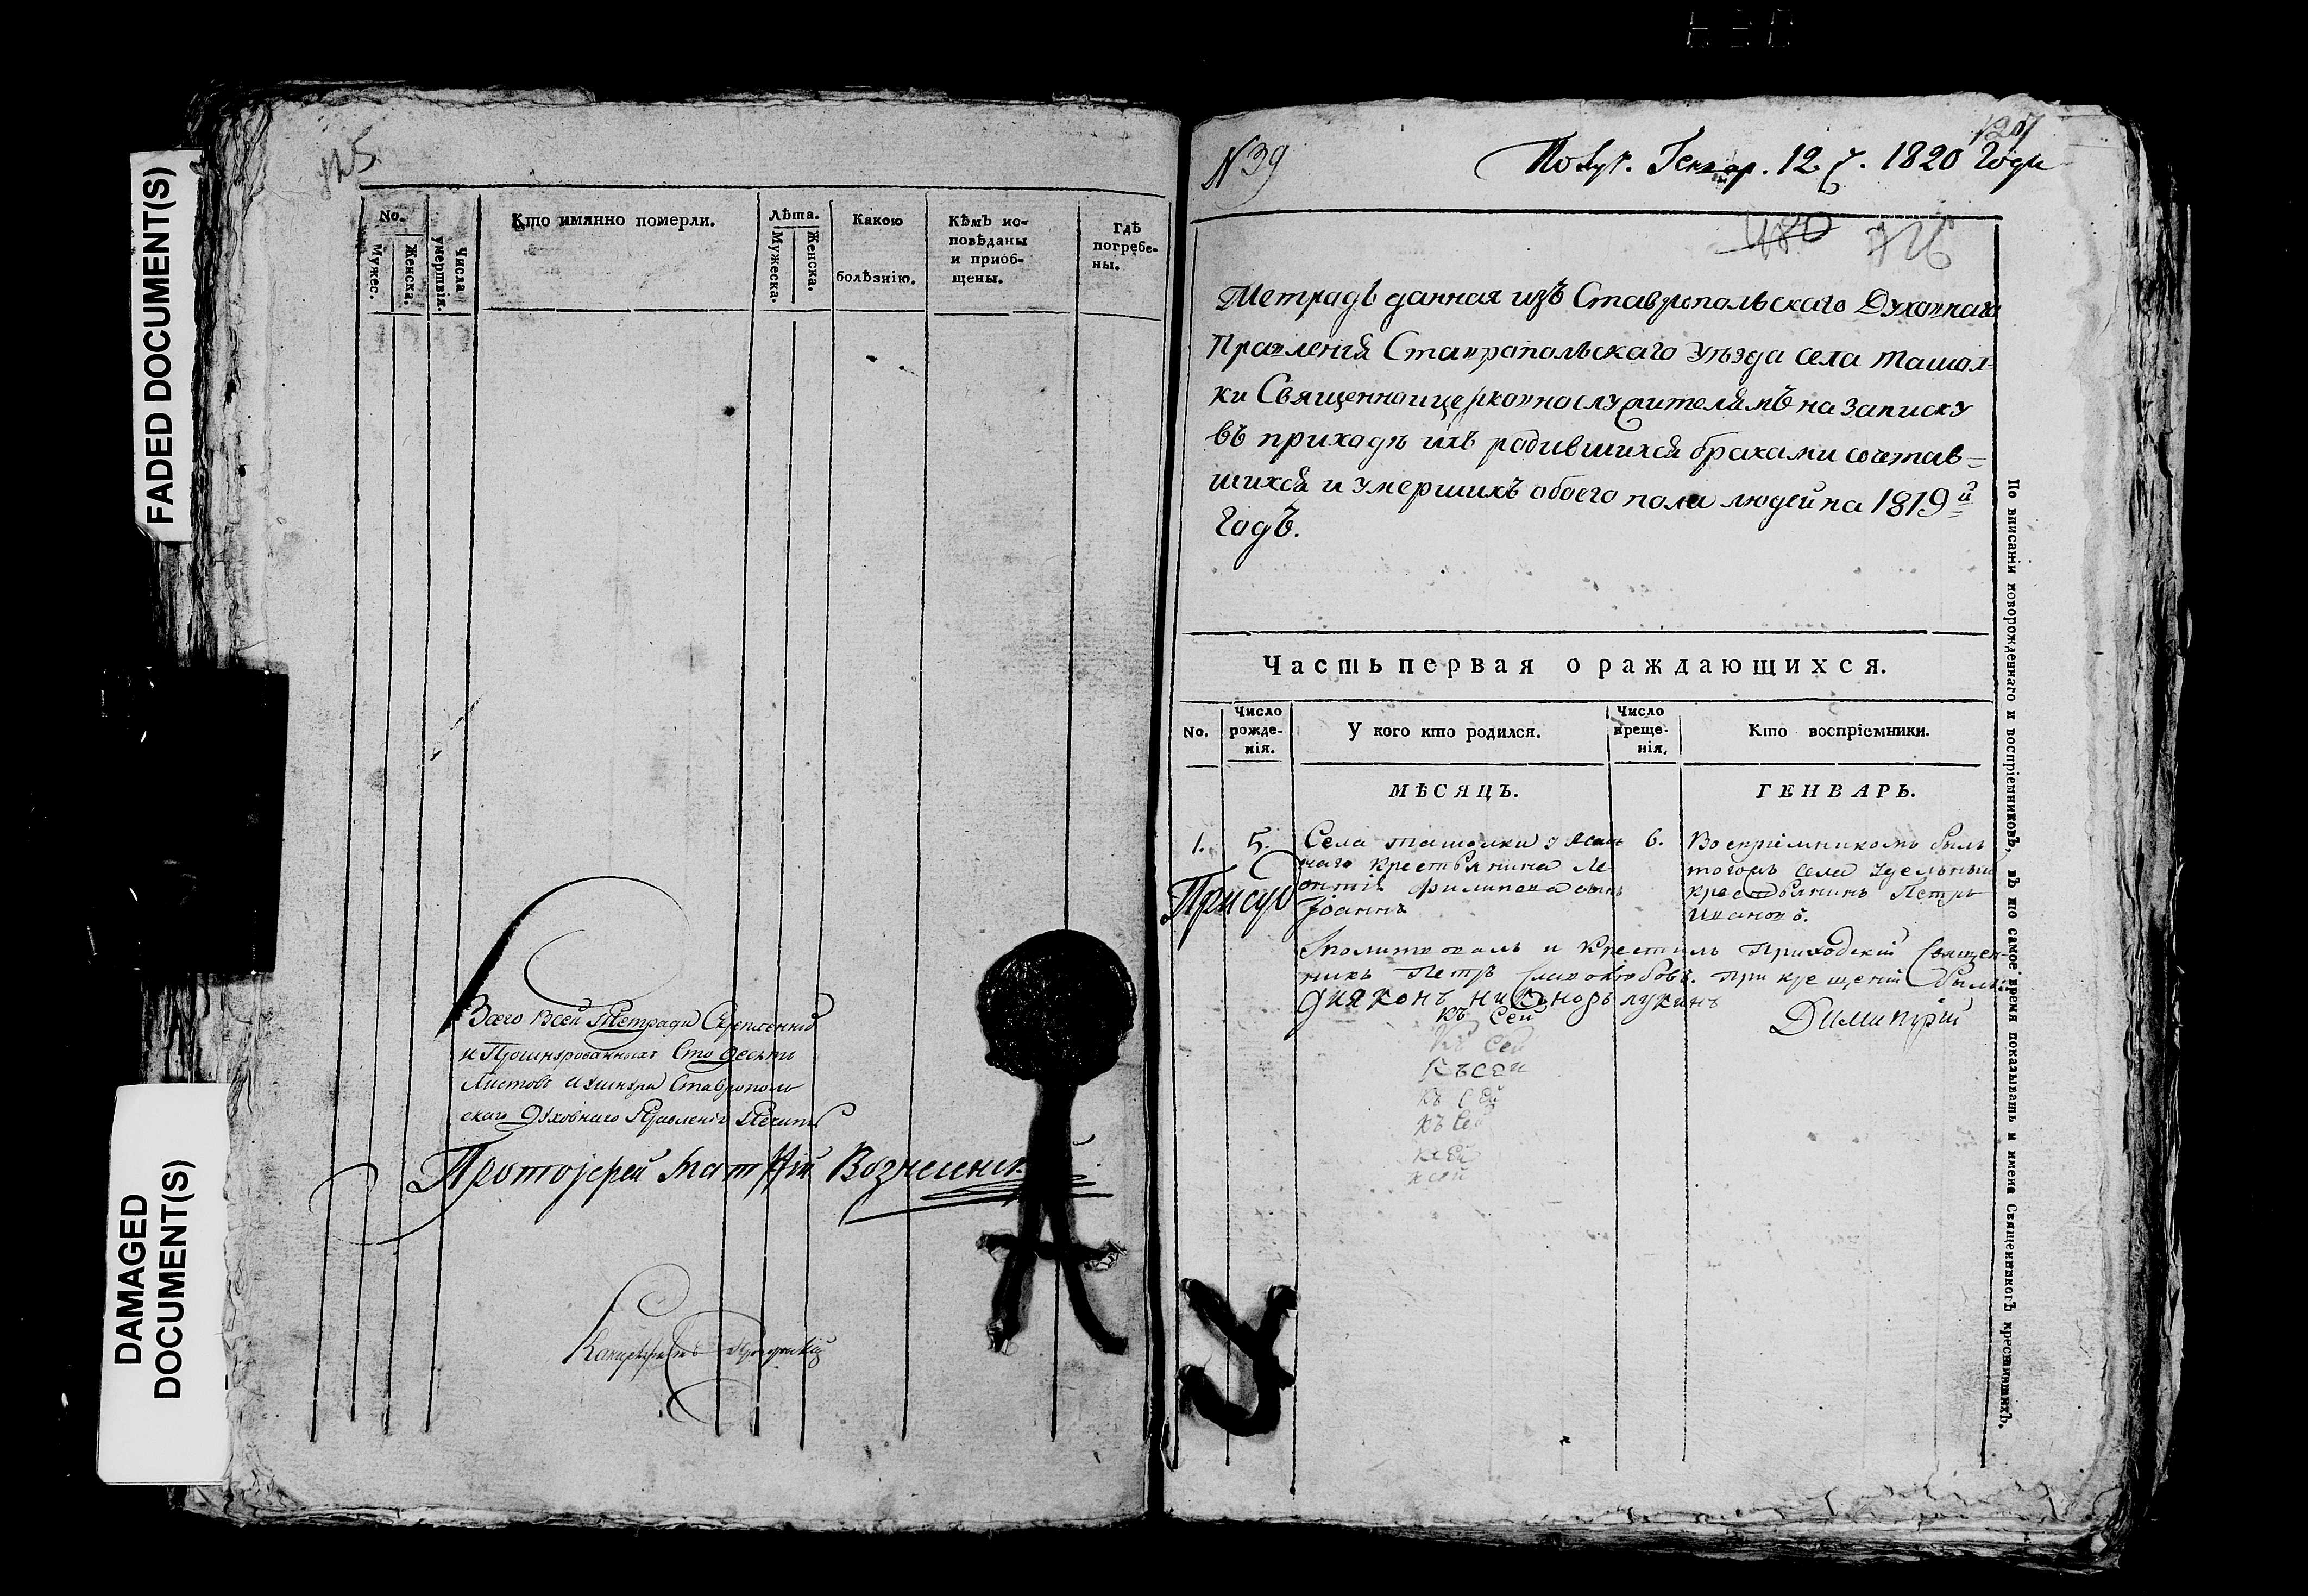 FADED DOCUMENT(S)
DAMAGED
DOCUMENT(S)
125
No.
Мужес.
Женска.
Числа
умертвія.
Кто имянно померли.
Лѣта.
Мужеска.
Женска.
Какою
болѣзнію.
Кѣмъ ис-
повѣданы
и пріоб-
щены.
Гдѣ
погребе-
ны.
Всего въ сей тетради Скрепленныхъ
и Прошнурованныхъ Сто десять
Листовъ Ставрополь
скаго Духовнаго Правленія Печать
Протоіерей Матѳій
N 39
Получ. Генвар. 12. 1820 Года
127
480 726
Тетрадь данная изъ Ставропольскаго Духовнаго
Правленія Ставропольскаго уѣзда села Ташол-
ки Священноицерковнослужителямъ на записку
въ приходѣ ихъ родившихся браками сочетав=
шихся и умершихъ обоего пола людей на 1819й
годъ.
Часть первая о раждающихся.
No.
Число
рожде-
нія.
У кого кто родился.
Число
креще-
нія.
Кто воспріемники.
МѢСЯЦЪ. ГЕНВАРЬ.
1. 5.
Села Ташолки у
наго крестьянина Ле
онтія Филипова сынъ
Іоаннъ
6.
Воспріемникомъ былъ
тогожъ села удельный
крестьянинъ Петръ
Ивановъ.
Присуд
Молитвовалъ и крестилъ Приходскій Священ-
никъ Петръ при крещеніи былъ:
дияконъ Никоноръ Лукинъ
Димитрій
къ сей
къ сей
къ сей
къ сей
къ сей
По вписаніи новорожденнаго и воспріемниковъ, въ то самое время показывать и имена Священниковъ крестившихъ.